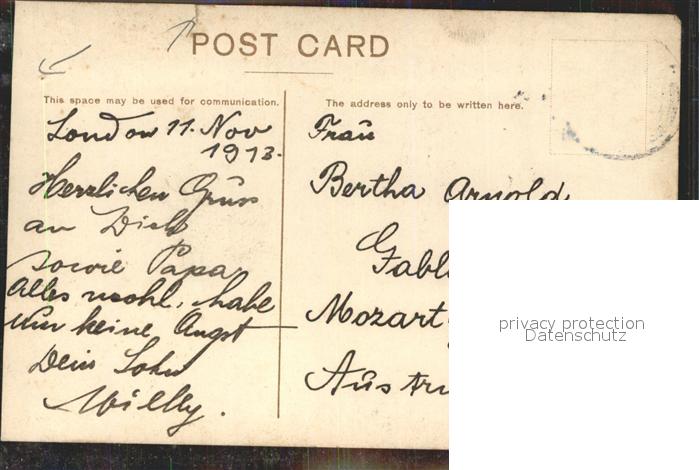 POST CARD
This space may be used for communication.
The address only to be written here.
London 11. Nov
1913.
Herzlichen Gruss
an Dich
sowie Papa
Alles wohl, habe
nur keine Angst
Dein Sohn
Willy.
Frau
Bertha Arnold
Gabl
Mozart
Aus
privacy protection
Datenschutz